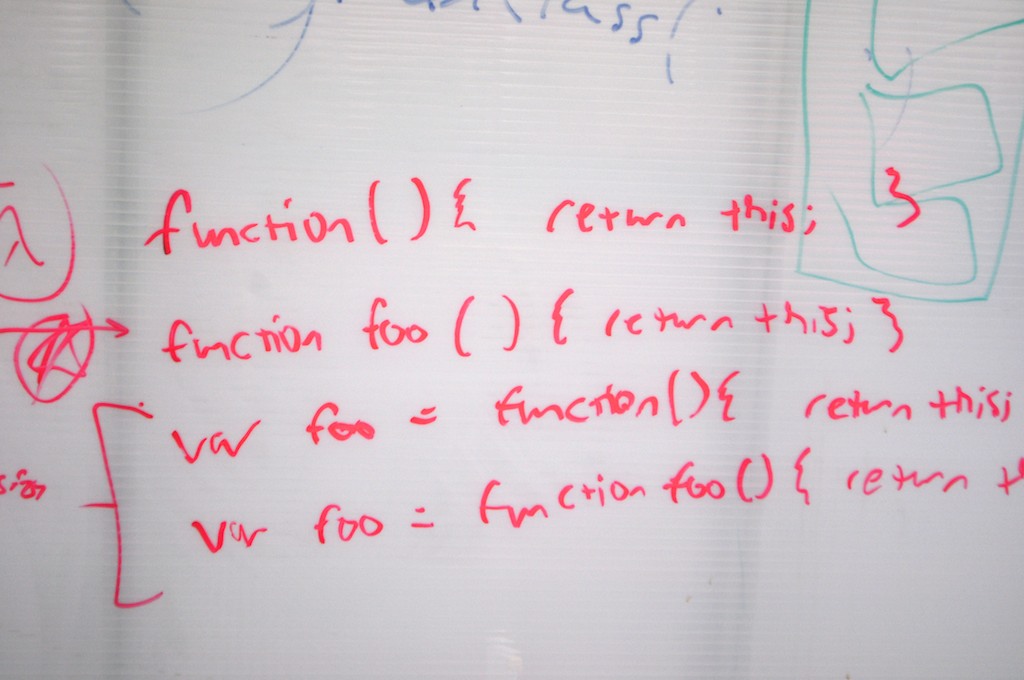 function(){ return this; }
λ
function foo(){ return this; }
var foo = function(){ return this;
var foo = function foo(){ return